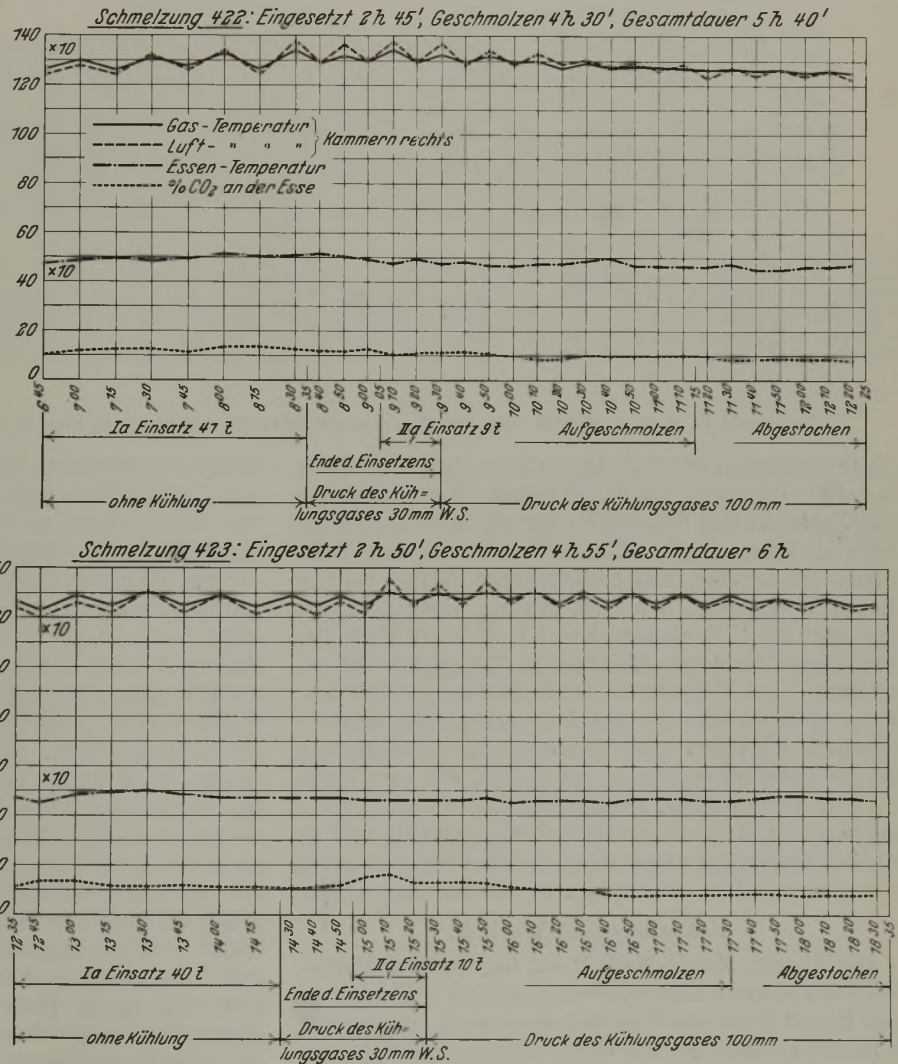 Schmelzung 422: Eingesetzt 2 h 45', Geschmolzen 4 h 30', Gesamtdauer 5 h 40'
140
×10
120
100
Gas - Temperatur
Luft - " " " } Kammern rechts
80
Essen - Temperatur
% CO₂ an der Esse
60
×10
40
20
0
6 45 7 00 7 15 7 30 7 45 8 00 8 15 8 30 8 35 8 40 8 50 9 00 9 05 9 10 9 20 9 30 9 40 9 50 10 00 10 10 10 20 10 30 10 40 10 50 11 00 11 10 11 15 11 20 11 30 11 40 11 50 12 00 12 10 12 20 12 25
Ia Einsatz 41 t
IIa Einsatz 9 t
Aufgeschmolzen
Abgestochen
Ende d. Einsetzens
ohne Kühlung
Druck des Küh=
lungsgases 30 mm W.S.
Druck des Kühlungsgases 100 mm
Schmelzung 423: Eingesetzt 2 h 50', Geschmolzen 4 h 55', Gesamtdauer 6 h
×10
×10
12 35 12 45 13 00 13 15 13 30 13 45 14 00 14 15 14 30 14 40 14 50 15 00 15 10 15 20 15 30 15 40 15 50 16 00 16 10 16 20 16 30 16 40 16 50 17 00 17 10 17 20 17 30 17 40 17 50 18 00 18 10 18 20 18 30 18 35
Ia Einsatz 40 t
IIa Einsatz 10 t
Aufgeschmolzen
Abgestochen
Ende d. Einsetzens
ohne Kühlung
Druck des Küh=
lungsgases 30 mm W.S.
Druck des Kühlungsgases 100 mm